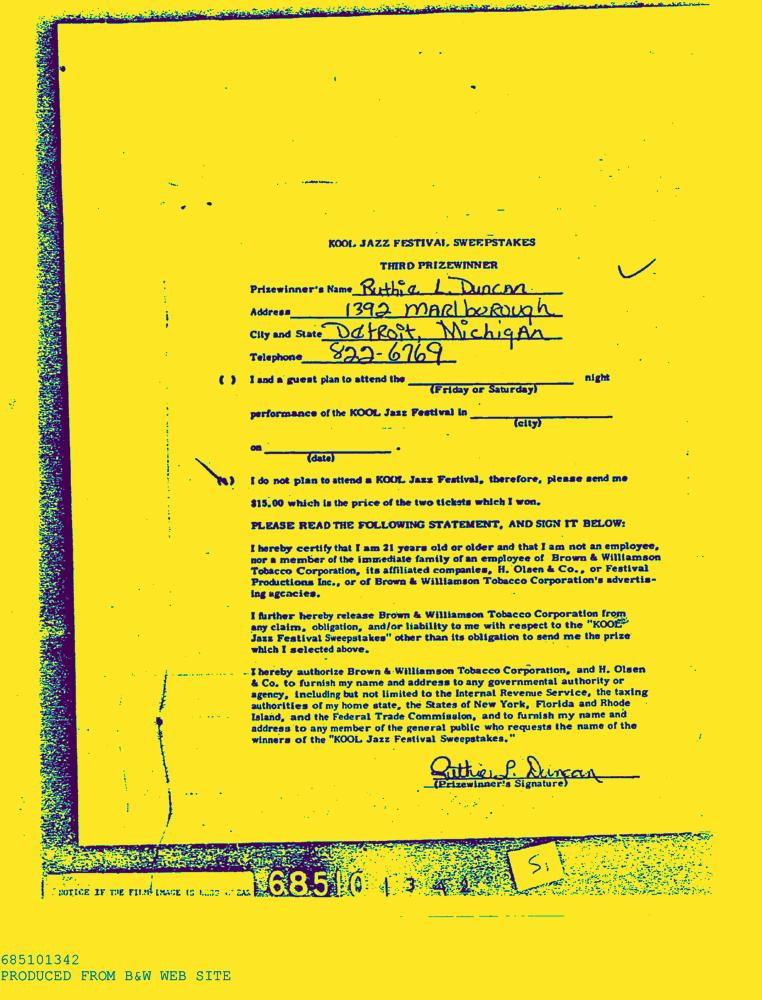 KOOL JAZZ FESTIVAL SWEEPSTAKES
THIRD PRIZEWINNER
Prizewinner's Name Ruthie L. Duncan
Address 1392 MARlboRough
City and State DetRoit, MichigAn
Telephone 822-6769
( ) I and a guest plan to attend the night
(Friday or Saturday)
performance of the KOOL Jazz Festival in
(city)
on .
(date)
I do not plan to attend a KOOL Jazz Festival, therefore, please send me
$15.00 which is the price of the two tickets which I won.
PLEASE READ THE FOLLOWING STATEMENT, AND SIGN IT BELOW:
I hereby certify that I am 21 years old or older and that I am not an employee,
nor a member of the immediate family of an employee of Brown & Williamson
Tobacco Corporation, its affiliated companies, H. Olsen & Co., or Festival
Productions Inc., or of Brown & Williamson Tobacco Corporation's advertis-
ing agencies.
I further hereby release Brown & Williamson Tobacco Corporation from
any claim, obligation, and/or liability to me with respect to the "KOOL
Jazz Festival Sweepstakes" other than its obligation to send me the prize
which I selected above.
I hereby authorize Brown & Williamson Tobacco Corporation, and H. Olsen
& Co. to furnish my name and address to any governmental authority or
agency, including but not limited to the Internal Revenue Service, the taxing
authorities of my home state, the States of New York, Florida and Rhode
Island, and the Federal Trade Commission, and to furnish my name and
address to any member of the general public who requests the name of the
winners of the "KOOL Jazz Festival Sweepstakes."
Ruthie L. Duncan
(Prizewinner's Signature)
NOTICE IF THE FILM IMAGE IS
685101342
685101342
PRODUCED FROM B&W WEB SITE